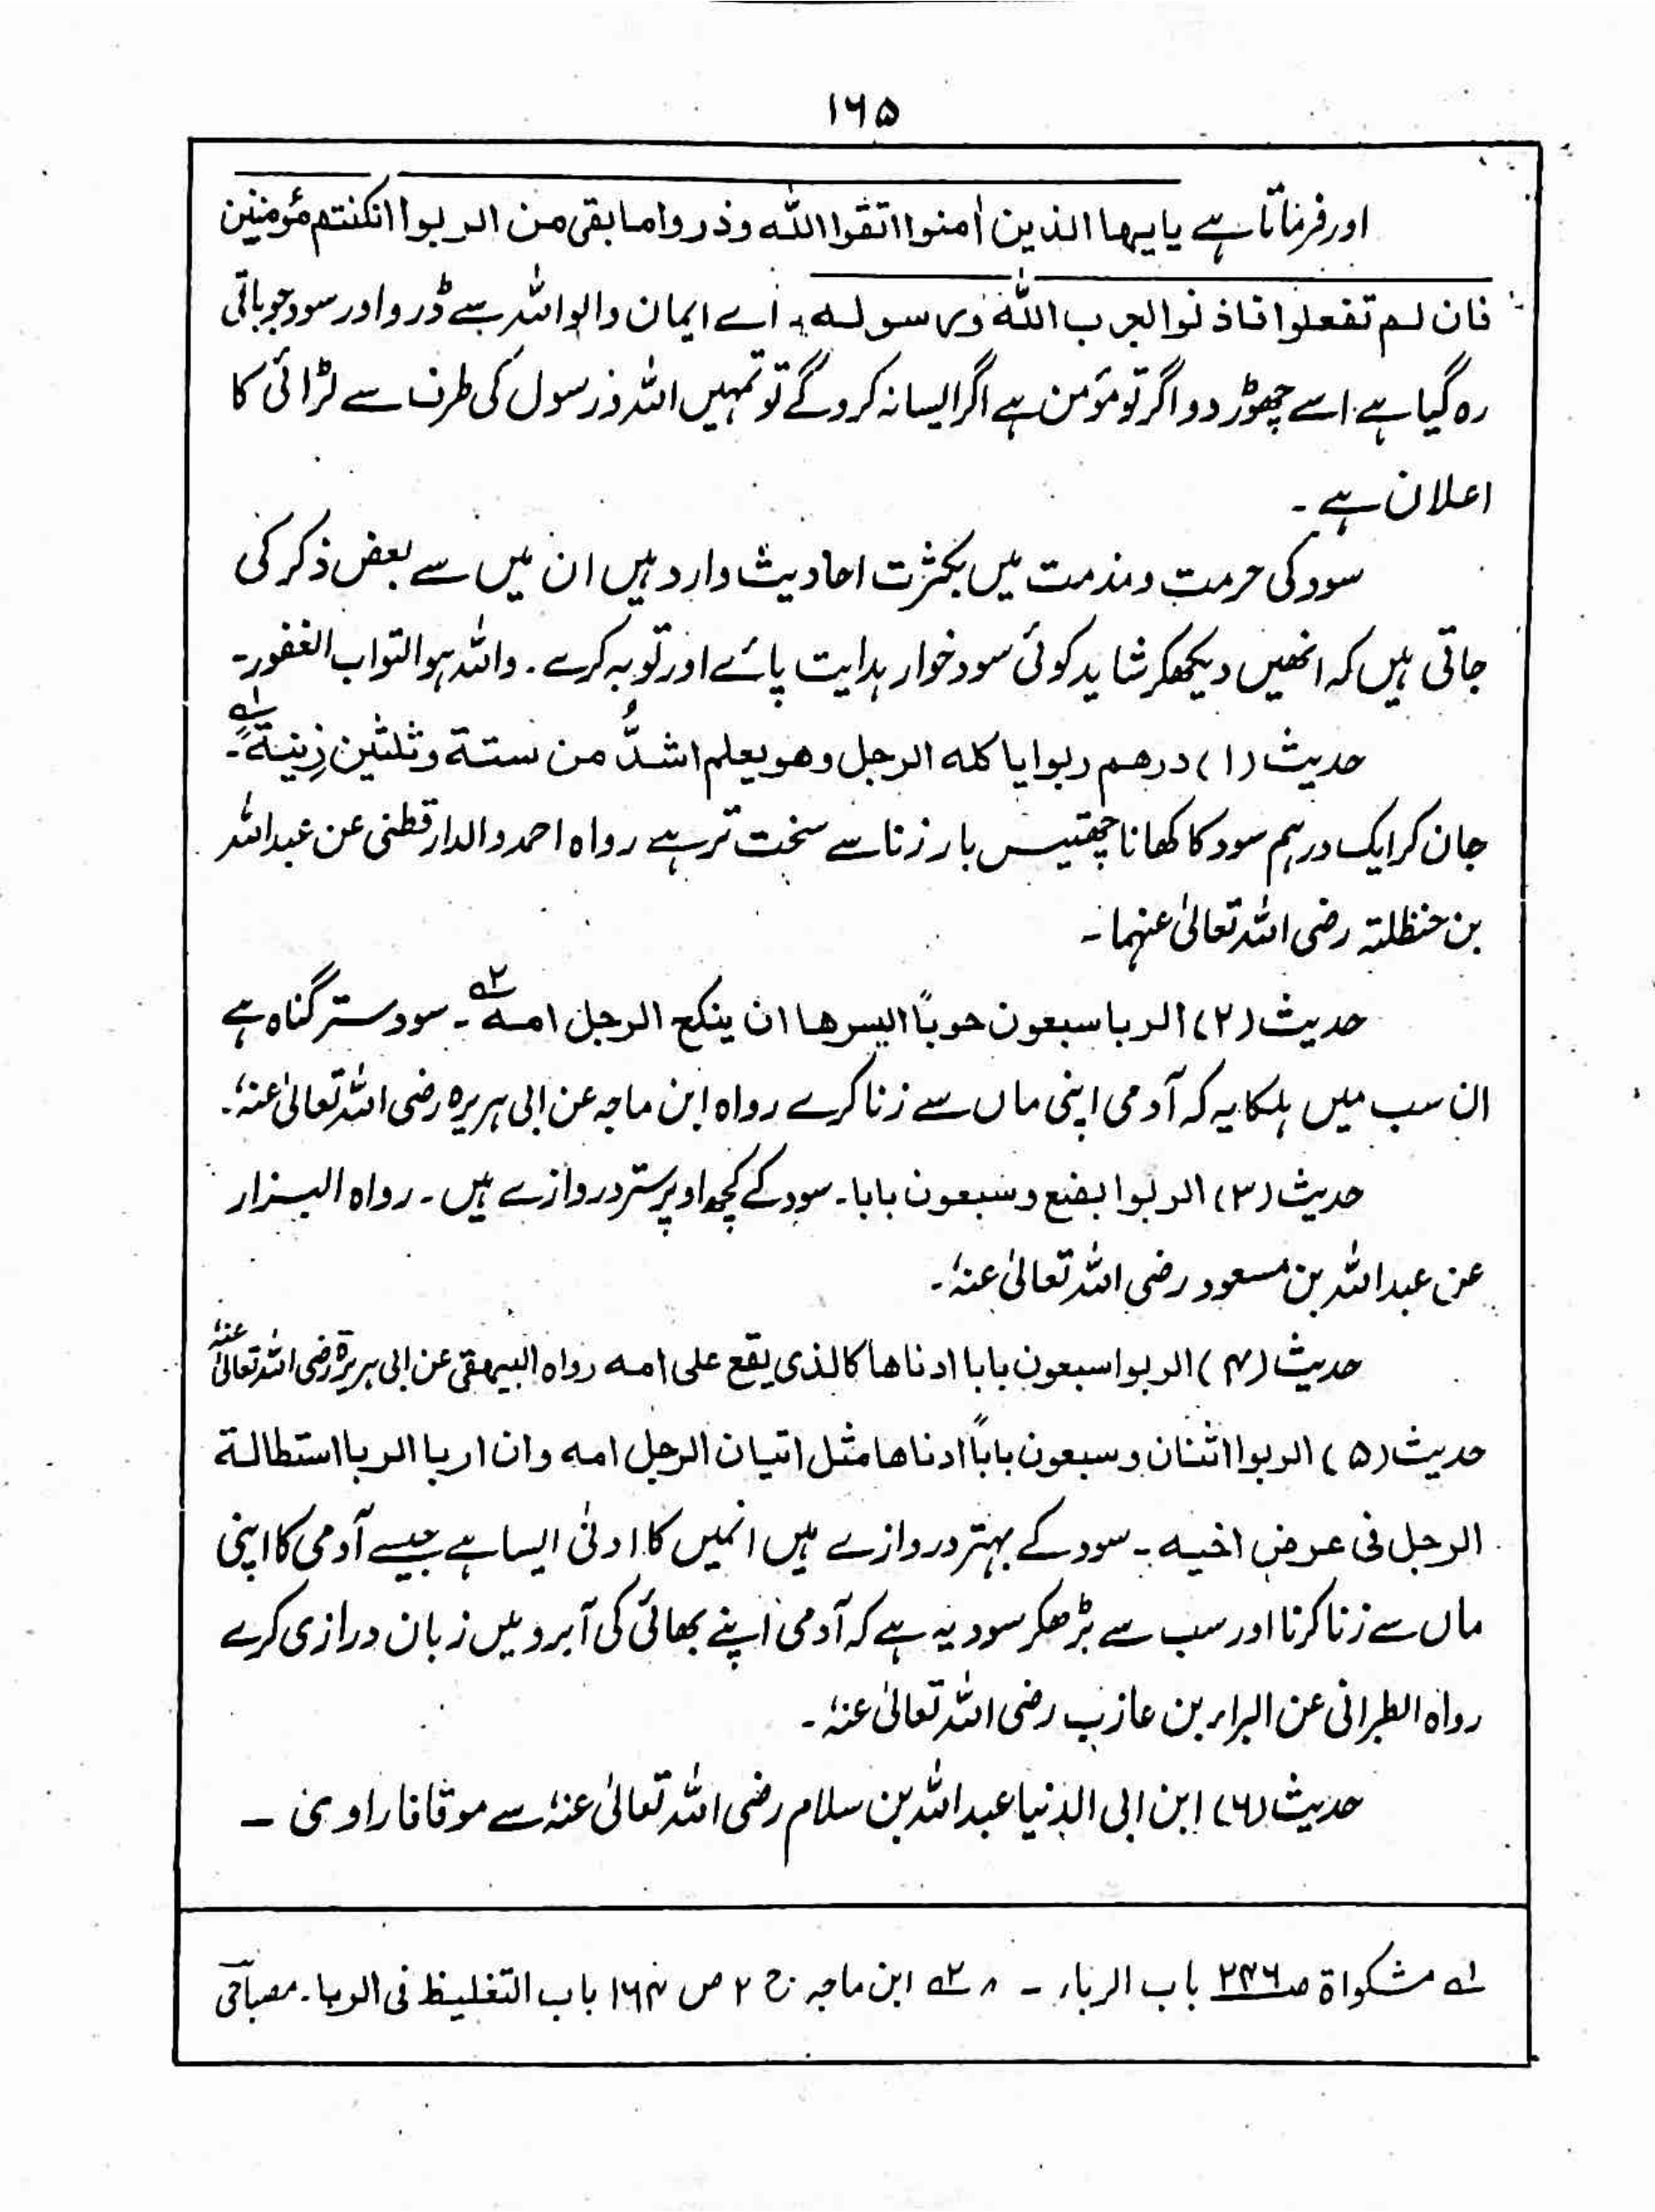 ۱۶۵
اور فرماتا ہے یایہا الذین اٰمنوا اتقوا اللّٰہ وذروا ما بقی من الربوا ان کنتم مؤمنین
فان لم تفعلوا فاذنوا بحرب اللّٰہ ورسولہ۔ اے ایمان والو اللہ سے ڈرو اور سود جو باقی
رہ گیا ہے اسے چھوڑ دو اگر تو مؤمن ہے اگر ایسا نہ کروگے تو تمہیں اللہ و رسول کی طرف سے لڑائی کا
اعلان ہے۔
سود کی حرمت و مذمت میں بکثرت احادیث وارد ہیں ان میں سے بعض ذکر کی
جاتی ہیں کہ انھیں دیکھکر شاید کوئی سود خوار ہدایت پائے اور توبہ کرے۔ واللہ ہو التواب الغفور۔
حدیث (۱) درھم ربوا یاکلہ الرجل وھو یعلم اشدُّ من ستۃ وثلثین زِنیۃً۱؎۔
جان کر ایک درہم سود کا کھانا چھتیس بار زنا سے سخت تر ہے رواہ احمد والدار قطنی عن عبداللہ
بن حنظلتہ رضی اللہ تعالیٰ عنہما۔
حدیث (۲) الربا سبعون حوباً ایسرھا ان ینکح الرجل امہ۲؎۔ سود ستر گناہ ہے
ان سب میں ہلکا یہ کہ آدمی اپنی ماں سے زنا کرے رواہ ابن ماجہ عن ابی ہریرہ رضی اللہ تعالیٰ عنہٗ۔
حدیث (۳) الربوا بضع وسبعون بابا۔ سود کے کچھ اوپر ستر دروازے ہیں۔ رواہ البزار
عن عبداللہ بن مسعود رضی اللہ تعالیٰ عنہٗ۔
حدیث (۴) الربوا سبعون بابا ادناھا کالذی یقع علی امہ رواہ البیہقی عن ابی ہریرۃ رضی اللہ تعالیٰ عنہٗ
حدیث (۵) الربوا اثنان وسبعون باباً ادناھا مثل اتیان الرجل امہ وان اربا الربا استطالۃ
الرجل فی عرض اخیہ۔ سود کے بہتر دروازے ہیں انمیں کا ادنیٰ ایسا ہے جیسے آدمی کا اپنی
ماں سے زنا کرنا اور سب سے بڑھکر سود یہ ہے کہ آدمی اپنے بھائی کی آبرو میں زبان درازی کرے
رواہ الطبرانی عن البراء بن عازب رضی اللہ تعالیٰ عنہٗ۔
حدیث (۶) ابن ابی الدنیا عبداللہ بن سلام رضی اللہ تعالیٰ عنہٗ سے موقافا راوی ۔
۱؎ مشکوٰۃ صـ۲۴۶ باب الرباء ۔ ۲؎ ابن ماجہ ج ۲ ص ۱۶۴ باب التغلیظ فی الربا۔ مصباحی